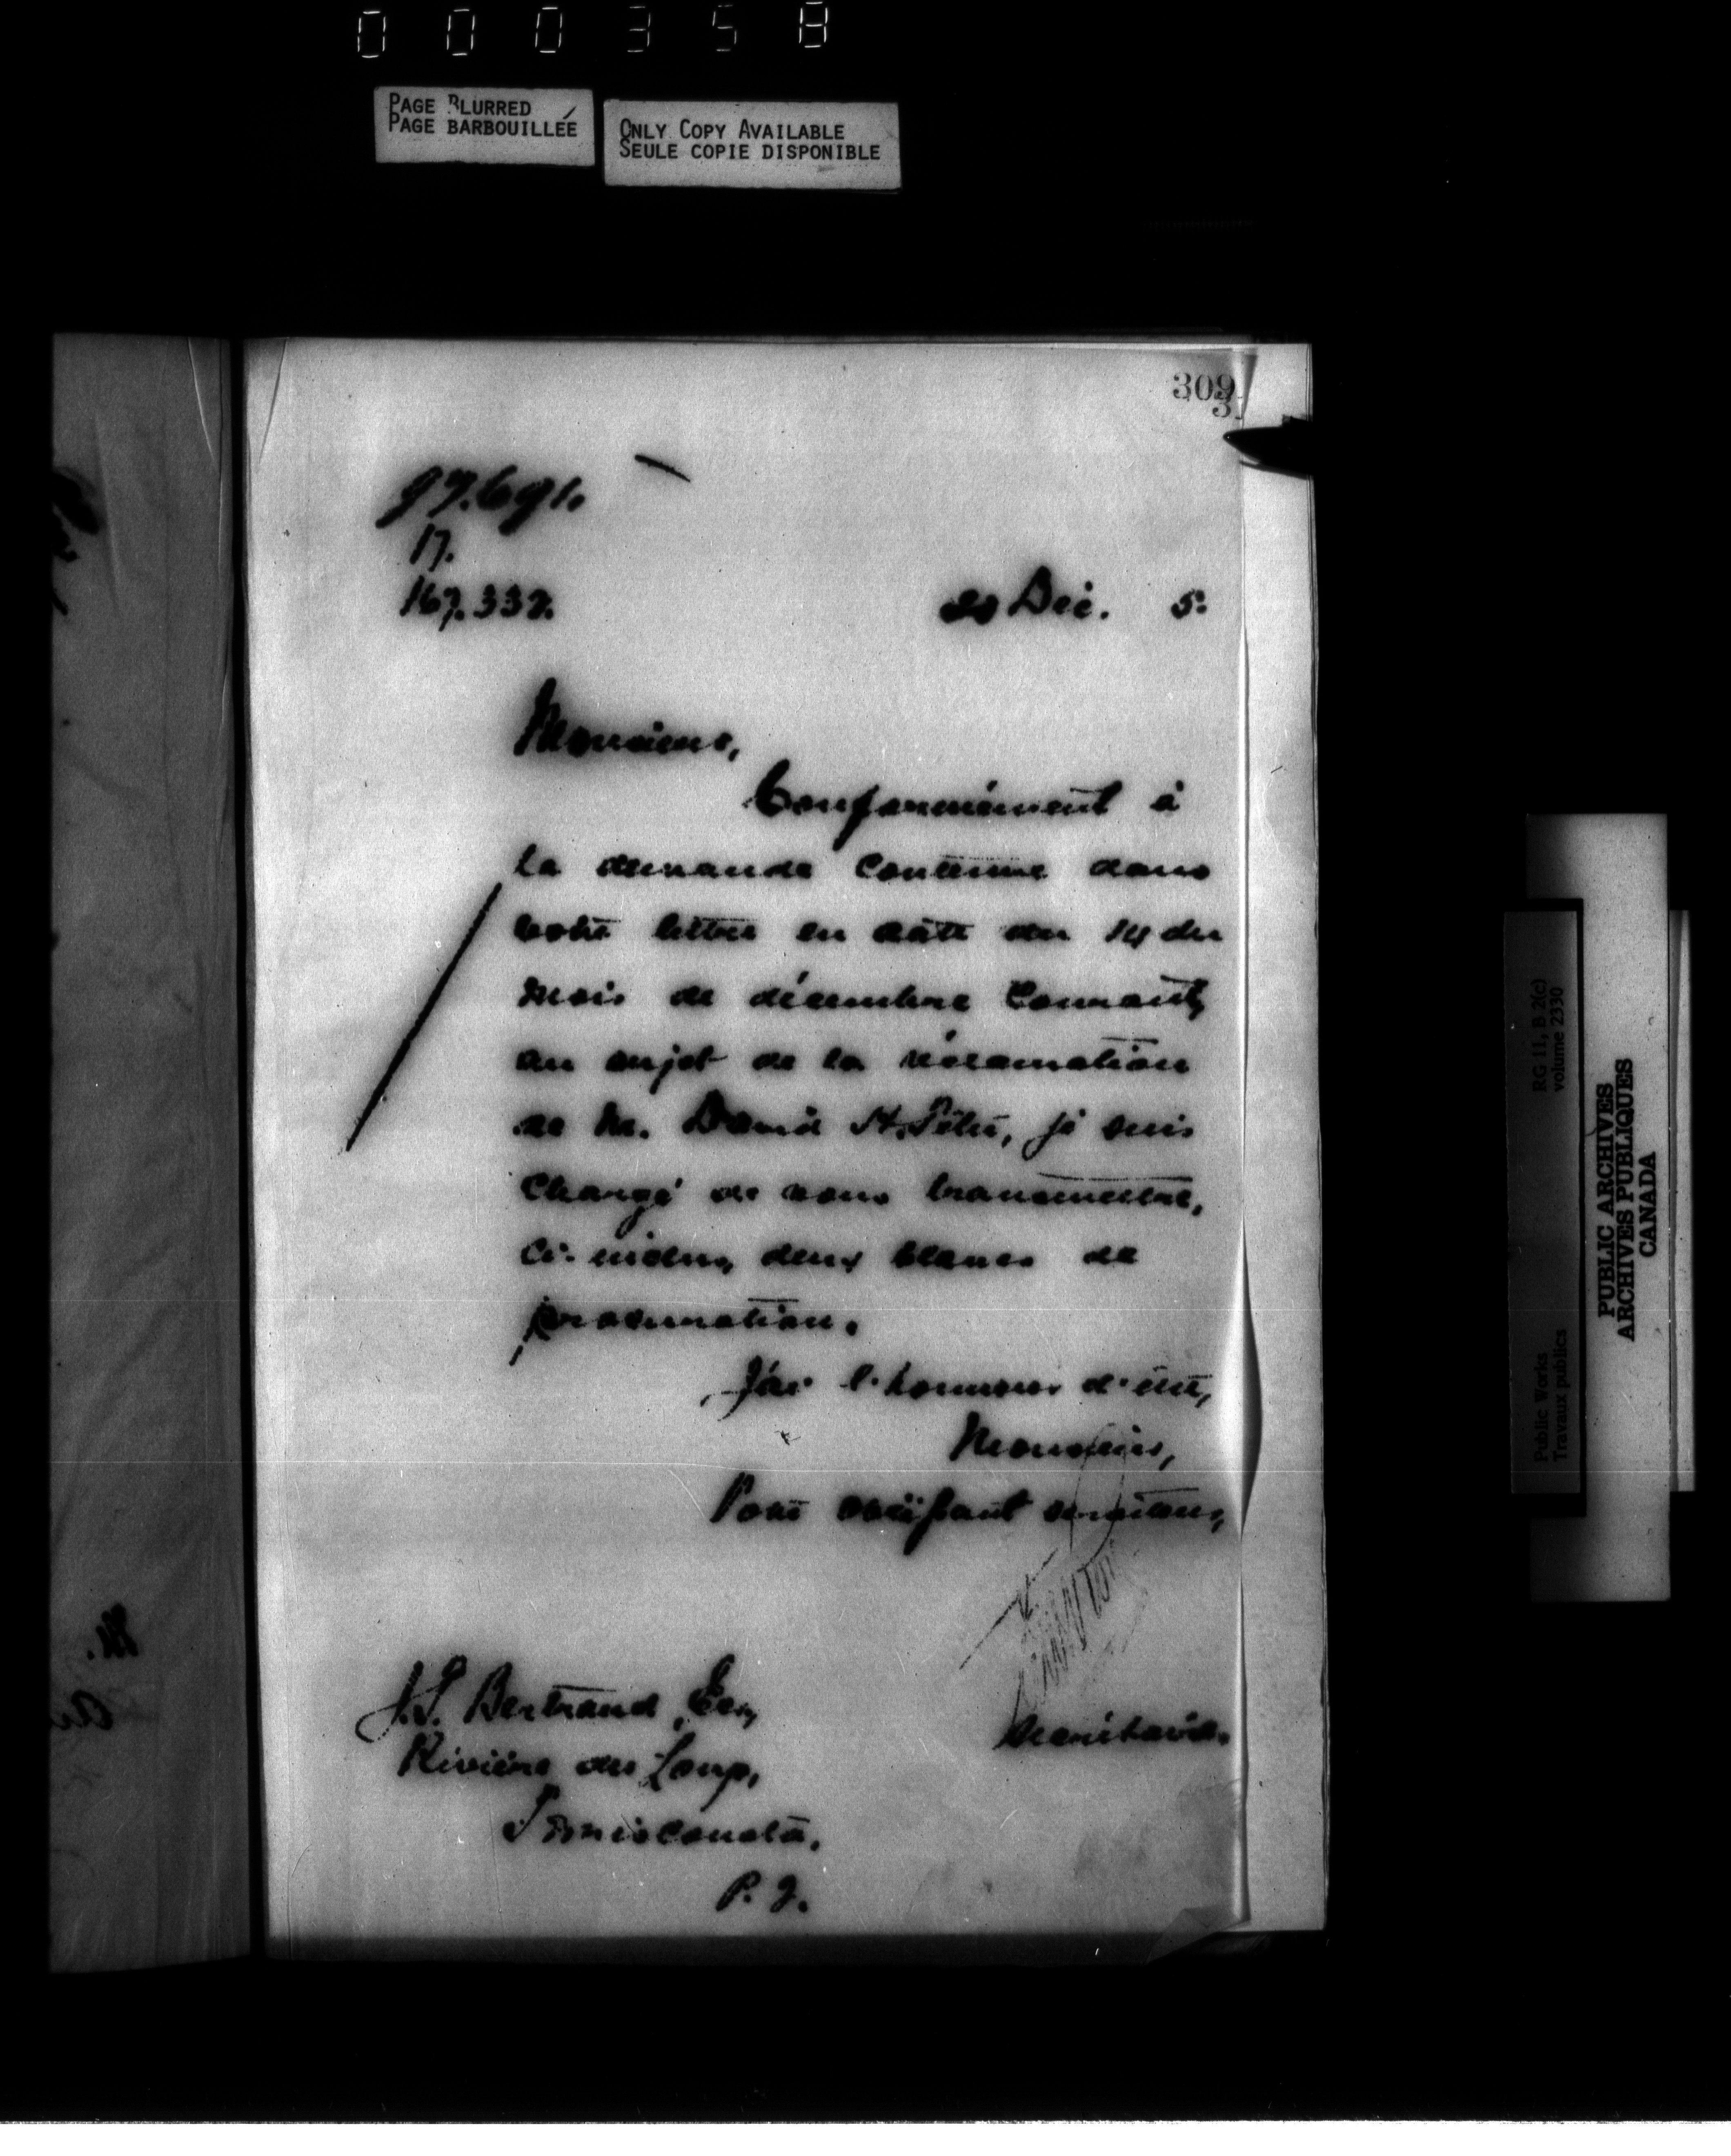 000358
PAGE BLURRED
PAGE BARBOUILLÉE
ONLY COPY AVAILABLE
SEULE COPIE DISPONIBLE
309
3
97.691.
17.
167.332.
20 Déc. 5.
Monsieur,
Conformément à
la demande contenue dans
votre lettre en date du 14 du
mois de décembre courant,
au sujet de la réclamation
de M. David St. Pierre, je suis
chargé de vous transmettre,
ci-inclus, deux blancs de
procuration.
J'ai l'honneur d'être,
Monsieur,
Votre obéissant serviteur,
J.S. Bertrand, Esr,
Rivière du Loup,
Témiscouata.
P. Q.
Secrétaire.
RG 11, B 2(c)
volume 2330
Public Works
Travaux publics
PUBLIC ARCHIVES
ARCHIVES PUBLIQUES
CANADA